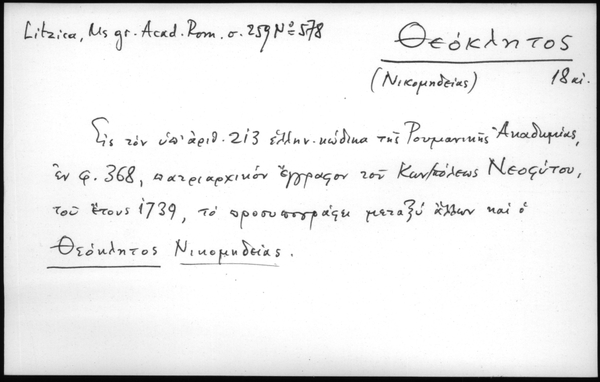 Litzica, Ms gr. Acad. Rom. σ. 259 Nº 578
Θεόκλητος
(Νικομηδείας) 18 αἰ.
Εἰς τὸν ὑπ' ἀριθ. 213 ἑλλην. κώδικα τῆς Ρουμανικῆς Ἀκαδημίας,
ἐν φ. 368, πατριαρχικόν ἔγγραφον τοῦ Κων/πόλεως Νεοφύτου,
τοῦ ἔτους 1739, τὸ προσυπογράφει μεταξύ ἄλλων καὶ ὁ
Θεόκλητος Νικομηδείας.